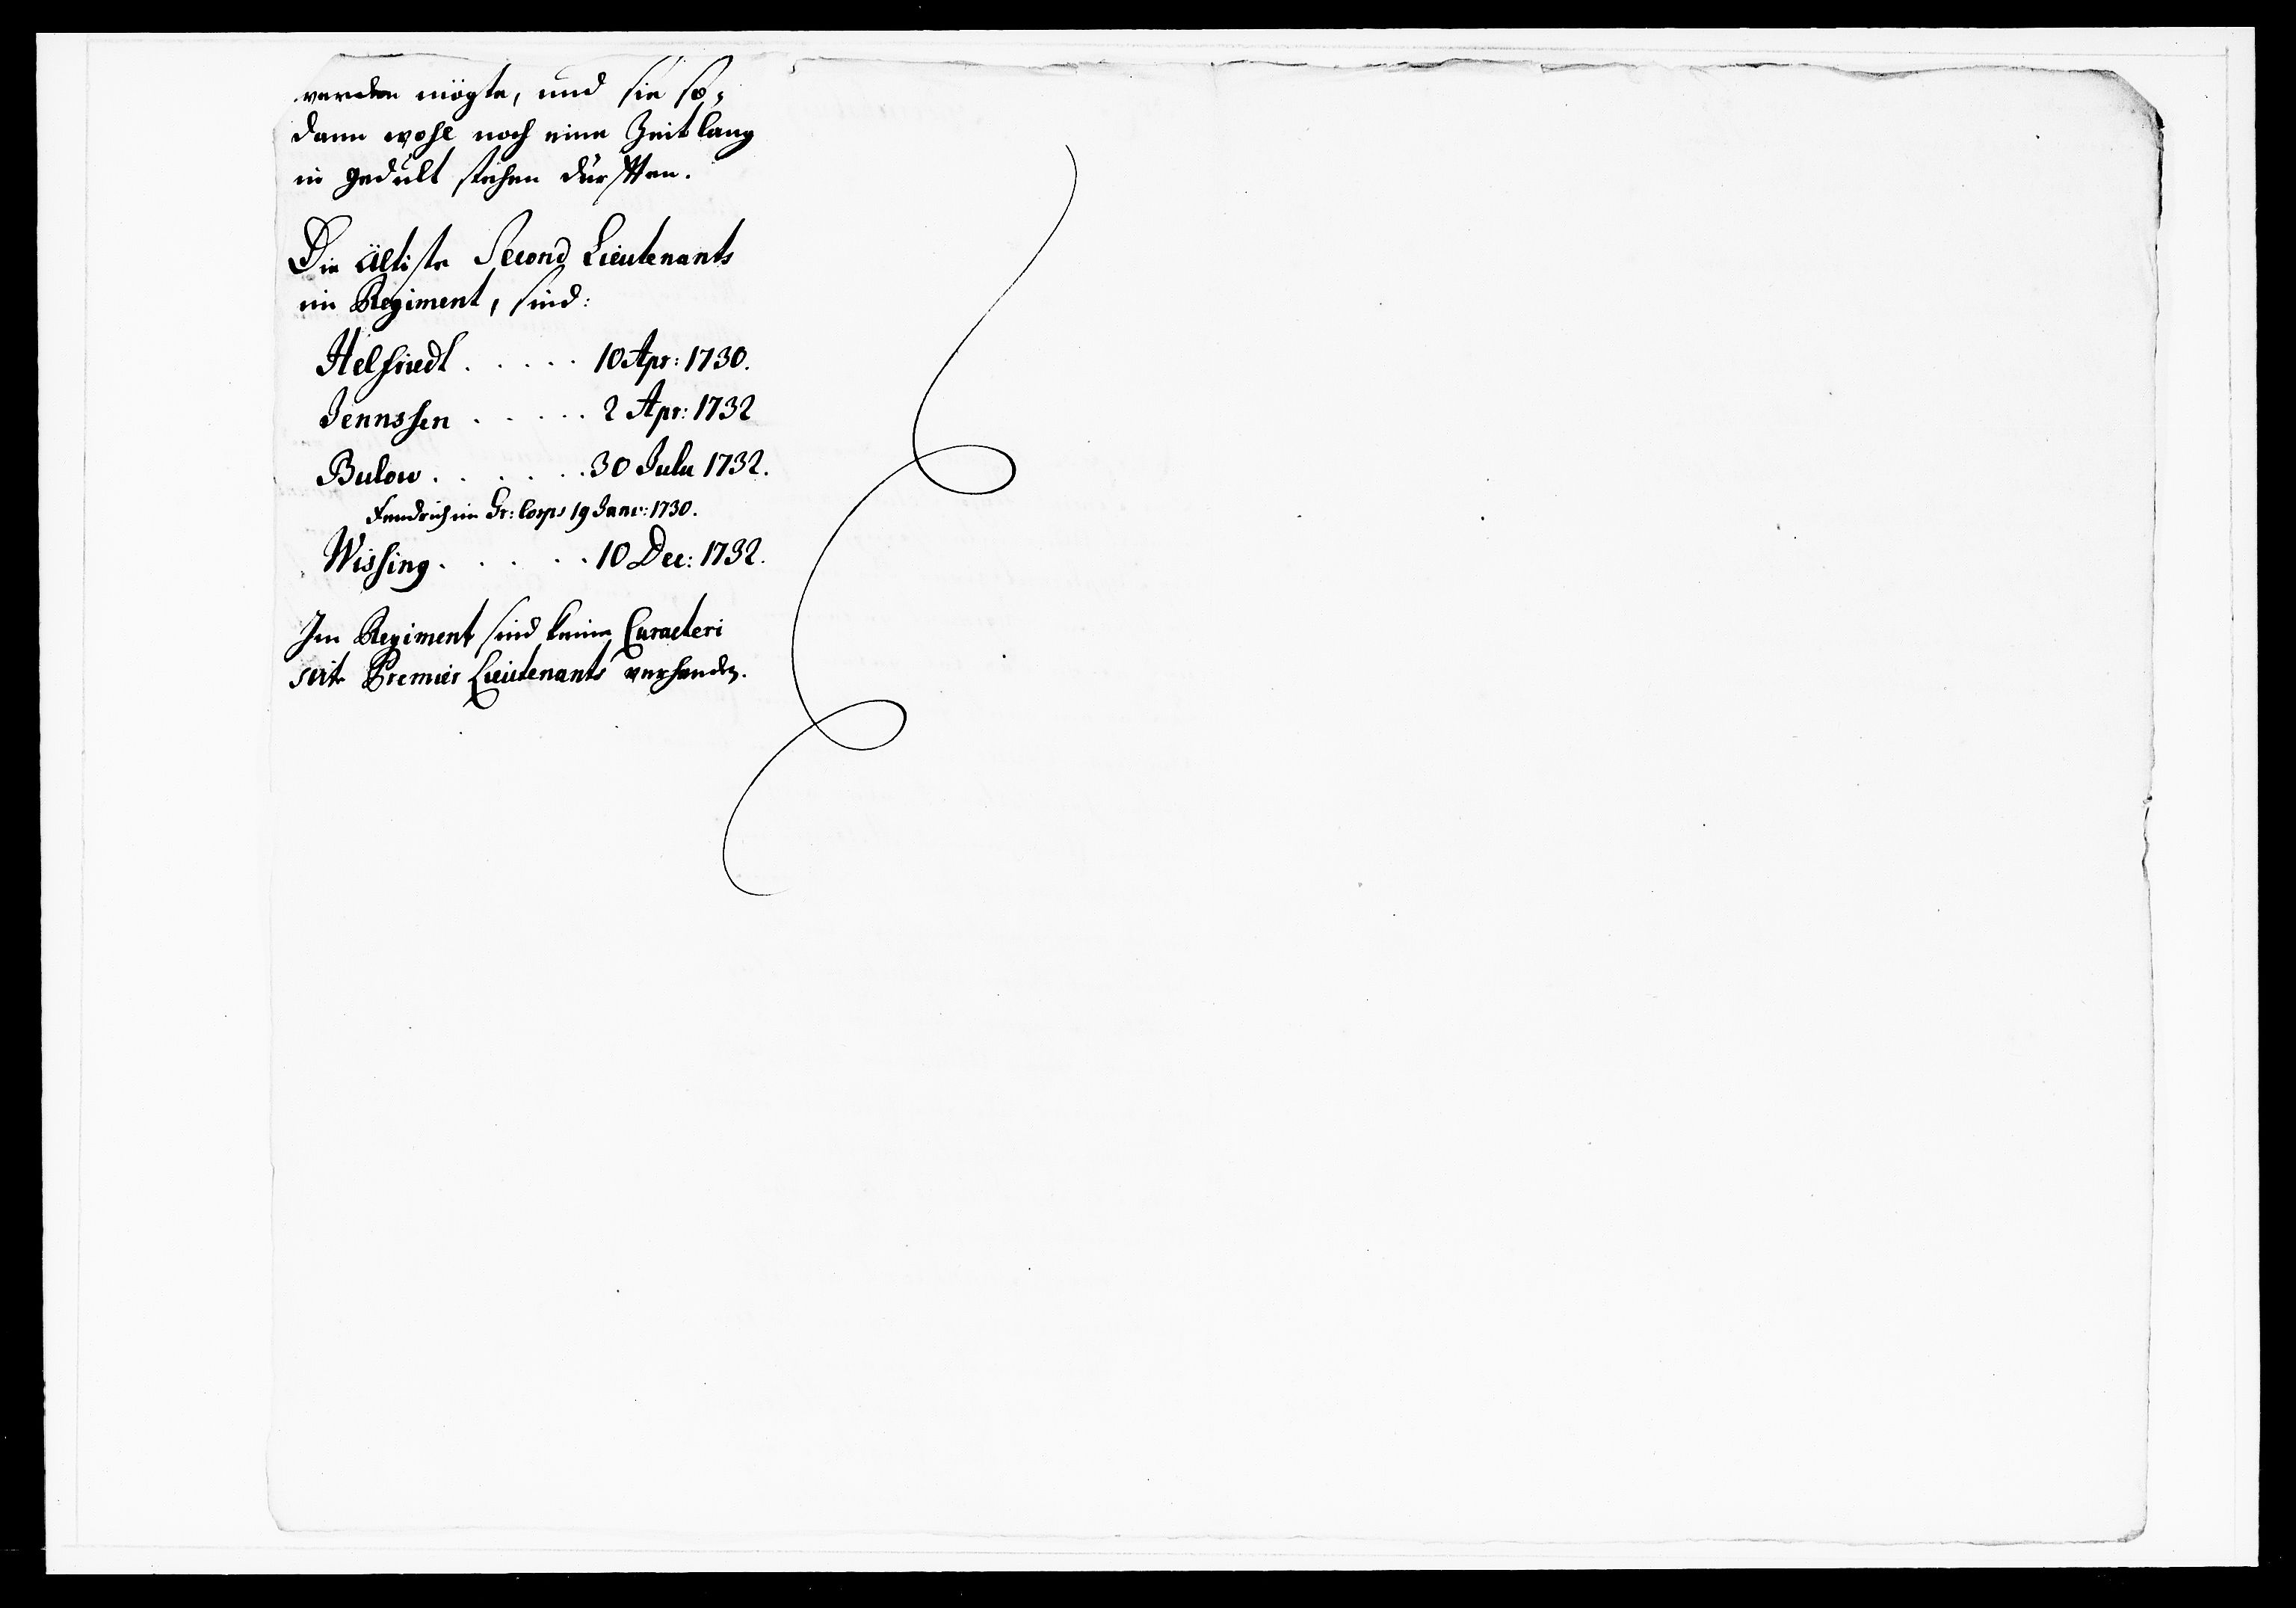 werden mögte, und sie so-
dann wohl noch eine Zeitlang
in gedült stehen dürfften.
Die ältiste Second Lieutenants
im Regiment, sind:
Helfriedt . . . . . 10 Apr: 1730.
Jennssen . . . . . 2 Apr: 1732
Bulow . . . . . . 30 Julii 1732.
Fendrich im Gr: Corps 19 Janv: 1730.
Wissing . . . . . 10 Dec: 1732.
Im Regiment sind keine Caracteri
sirte Premier Lieutenants verhanden.